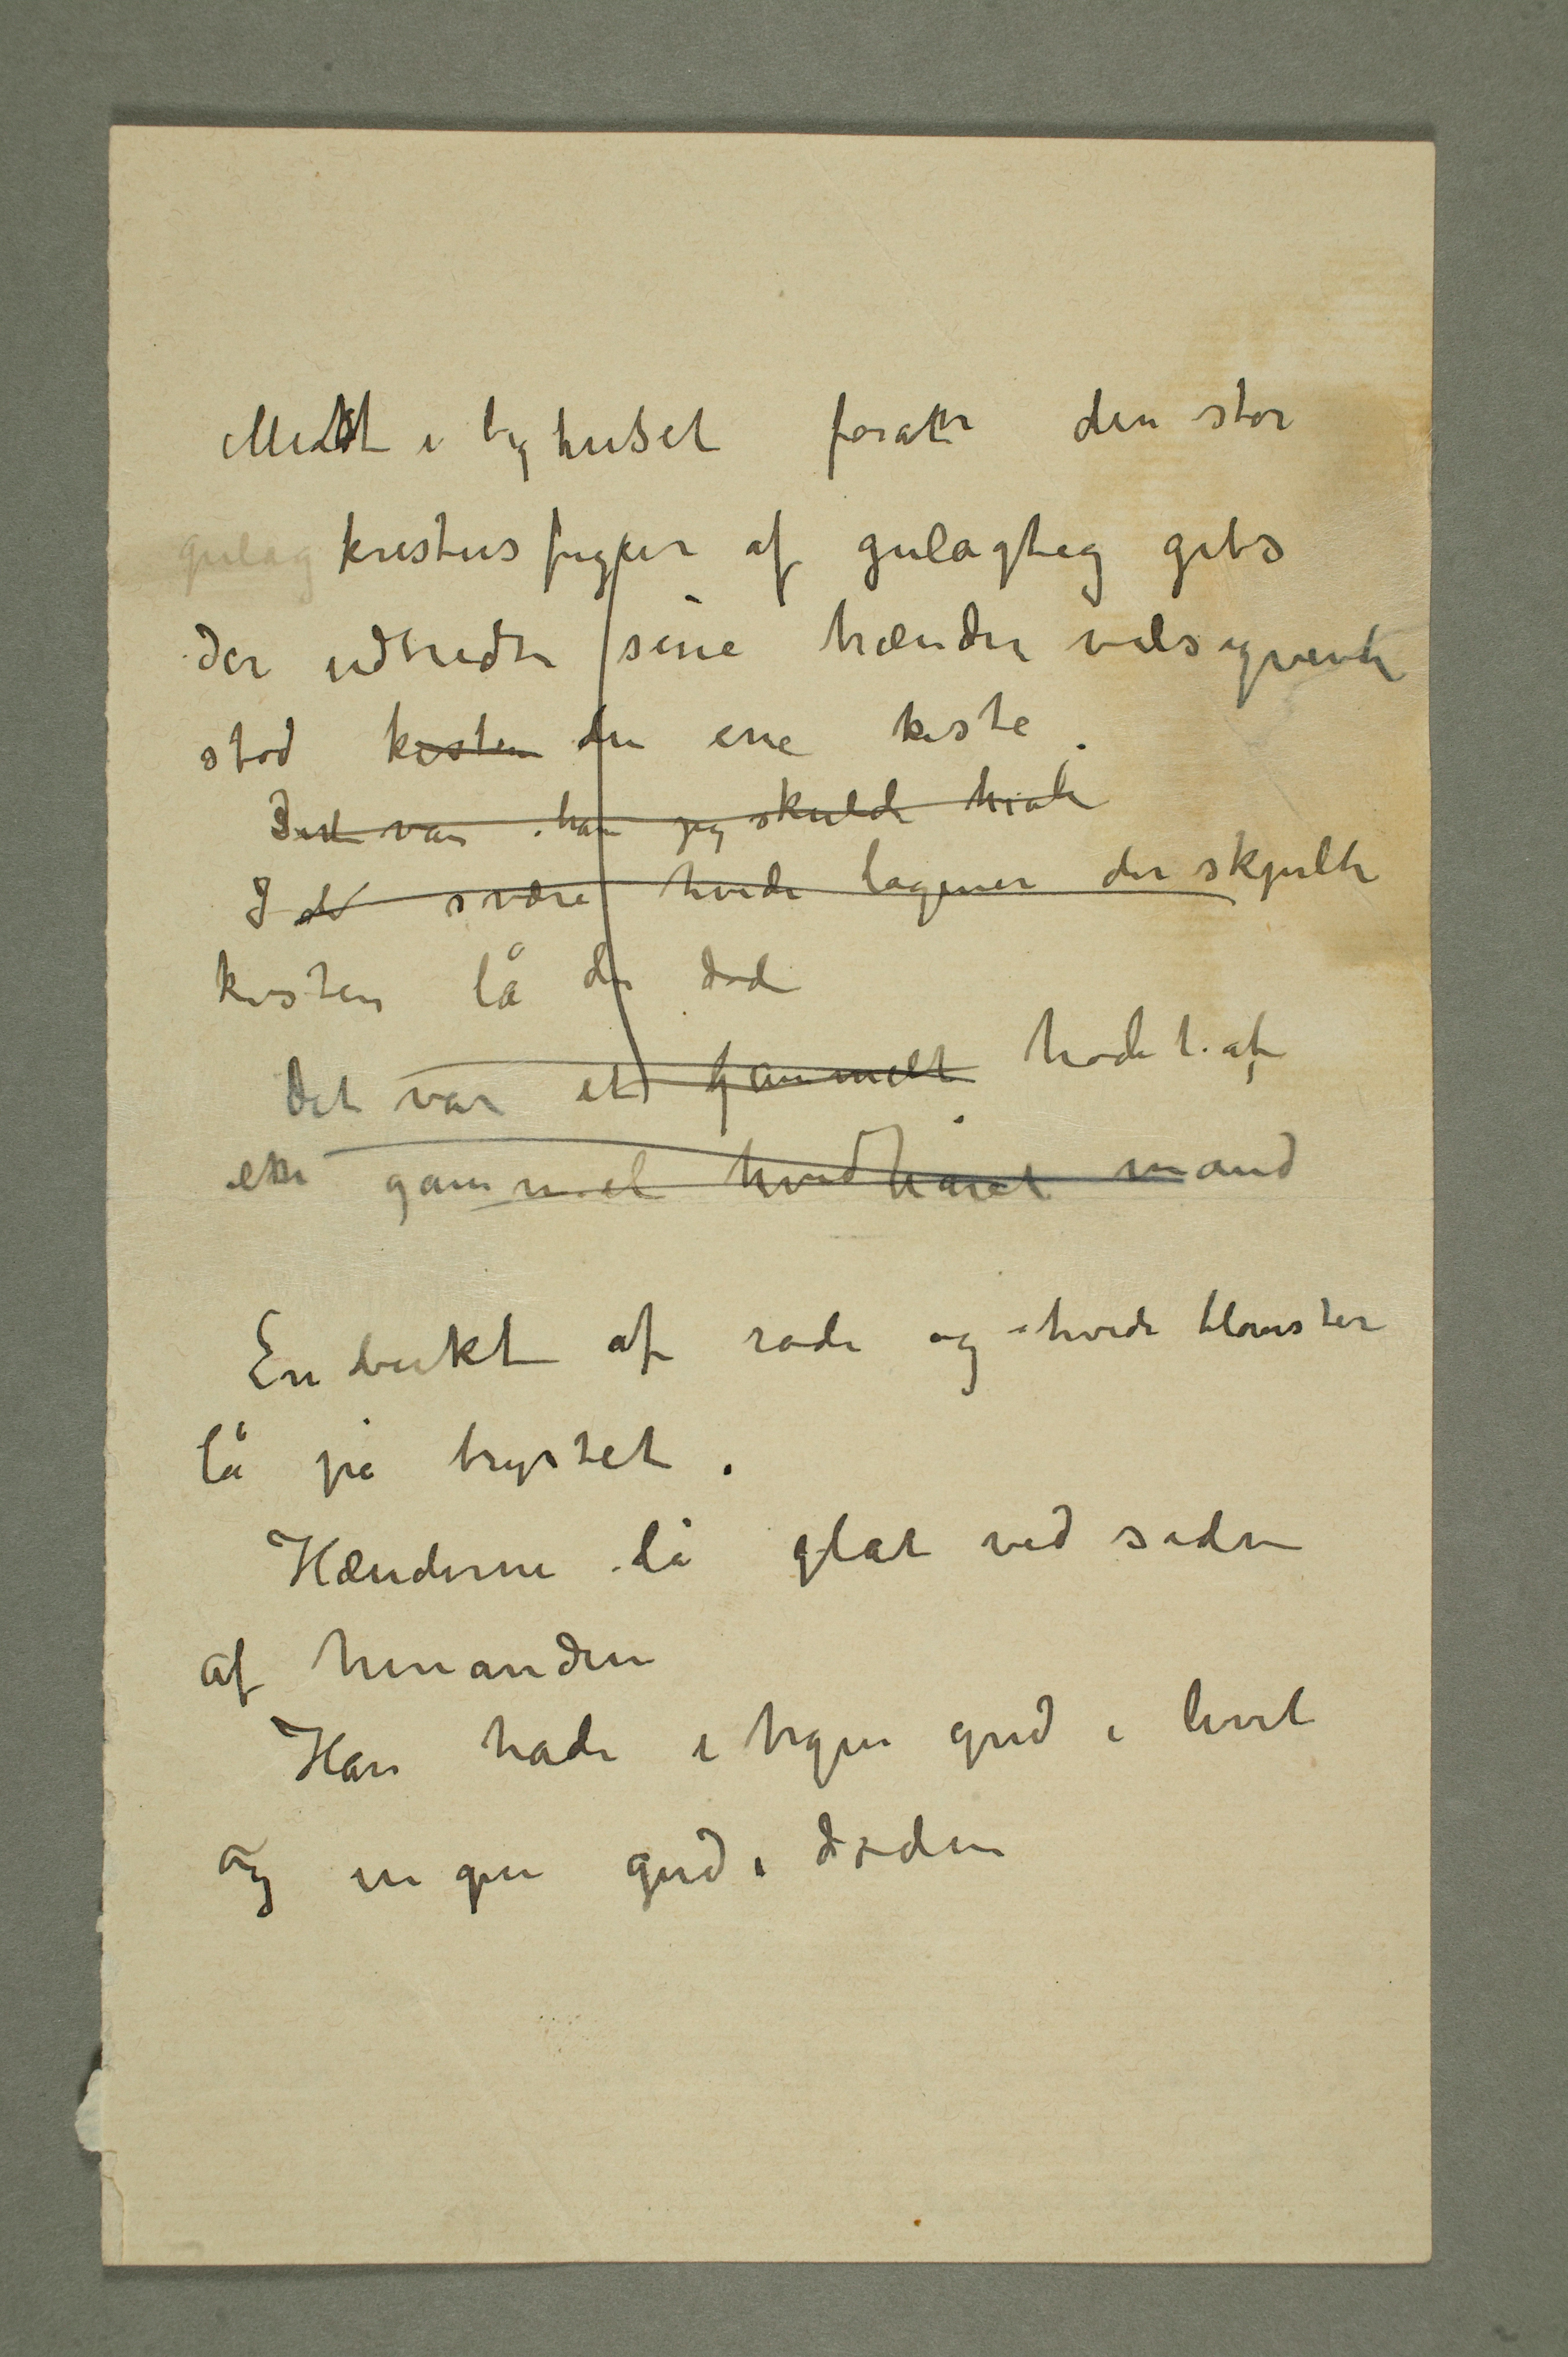 Midt i lighuset foran den stor
gulag kristusfigur af gulagtig gibs
der udbredte sine hænder velsignende
stod kisten den ene kiste.
Det var han jeg skulde
I de svære hvide lagener der skjulte
kisten lå den døde
Det var et gammelt hodet af
en gammel hvidhåret mand
En bukt af røde og hvide blomster
lå på brystet.
Hænderne lå glat ved siden
af hinanden
Han hade ingen gud i livet
og ingen gud i døden